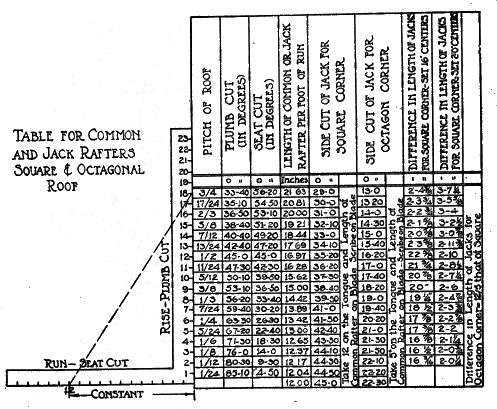 TABLE FOR COMMON
AND JACK RAFTERS
SQUARE & OCTAGONAL
ROOF
RISE-PLUMB CUT
RUN-SEAT CUT
12
CONSTANT
PITCH OF ROOF
PLUMB CUT (IN DEGREES)
SEAT CUT (IN DEGREES)
LENGTH OF COMMON OR JACK RAFTER PER FOOT OF RUN
SIDE CUT OF JACK FOR SQUARE CORNER
SIDE CUT OF JACK FOR OCTAGON CORNER
DIFFERENCE IN LENGTH OF JACKS FOR SQUARE CORNER-SET 16" CENTERS
DIFFERENCE IN LENGTH OF JACKS FOR SQUARE CORNER-SET
Inches
23
22
21
20
19
18 3/4 33-40 56-20 21.63 29-0 13-0
17 17/24 35-10 54-50 20.81 30-0 13-20
16 2/3 36-50 53-10 20.00 31-0 14-0 2-3 3-4
15 5/8 38-40 51-20 19.21 32-10 14-30
14 7/12 40-40 49-20 18.44 33-0 15-0
13 13/24 42-40 47-20 17.69 34-10 15-40
12 1/2 45-0 45-0 16.97 35-20 16-20
11 11/24 47-30 42-30 16.28 36-20 17-0
10 5/12 50-10 39-50 15.62 37-30 17-40
9 3/8 53-10 36-50 15.00 38-40 18-20 20" 2-6
8 1/3 56-20 33-40 14.42 39-50 18-0
7 7/24 59-40 30-20 13.89 41-0 19-40
6 1/4 63-30 26-30 13.42 41-50 20-20
5 5/24 67-20 22-40 13.00 42-40 21-0
4 1/6 71-30 18-30 12.65 43-30 21-30
3 1/8 76-0 14-0 12.37 44-10 21-50
2 1/12 80-30 9-30 12.17 44-30 22-10
1 1/24 85-10 4-50 12.04 44-50 22-20
12.00 45-0 22-30
Take 12 on the Tongue and Length of Common Rafter on Blade. Scribe on Blade
Take 5 on the Tongue and Length of Common Rafter on Blade Scribe on Blade
Difference in Length of Jacks for Octagon Corner-12/5 that of Square